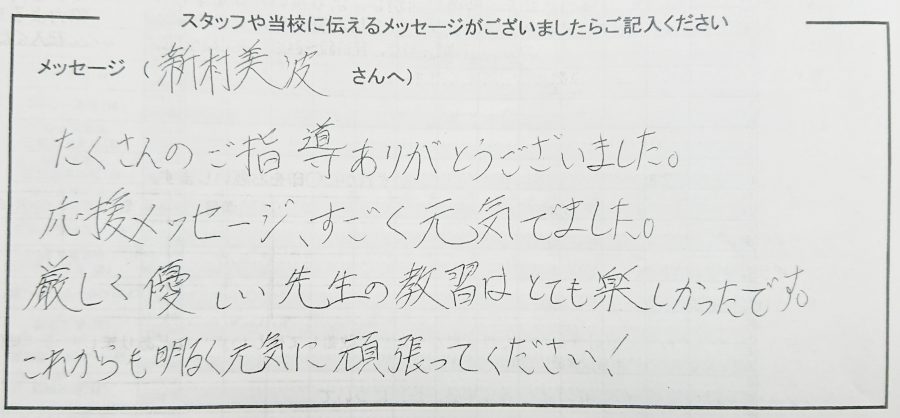 スタッフや当校に伝えるメッセージがございましたらご記入ください
メッセージ（新村美波 さんへ）
たくさんのご指導ありがとうございました。
応援メッセージ、すごく元気でました。
厳しく優しい先生の教習はとても楽しかったです。
これからも明るく元気に頑張ってください！